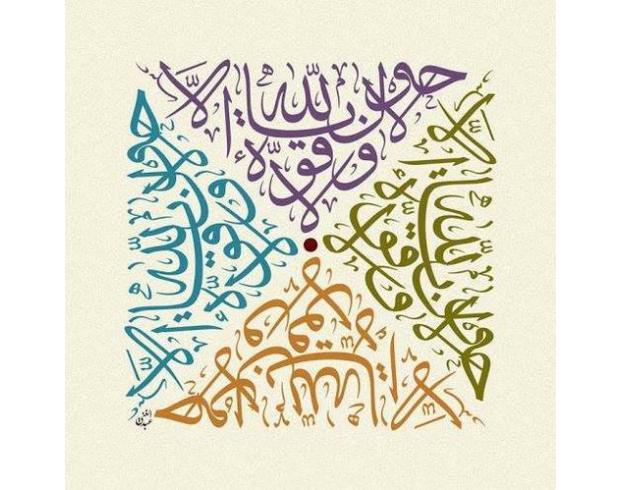 لا حول ولا قوة إلا بالله
لا حول ولا قوة إلا بالله
لا حول ولا قوة إلا بالله
لا حول ولا قوة إلا بالله